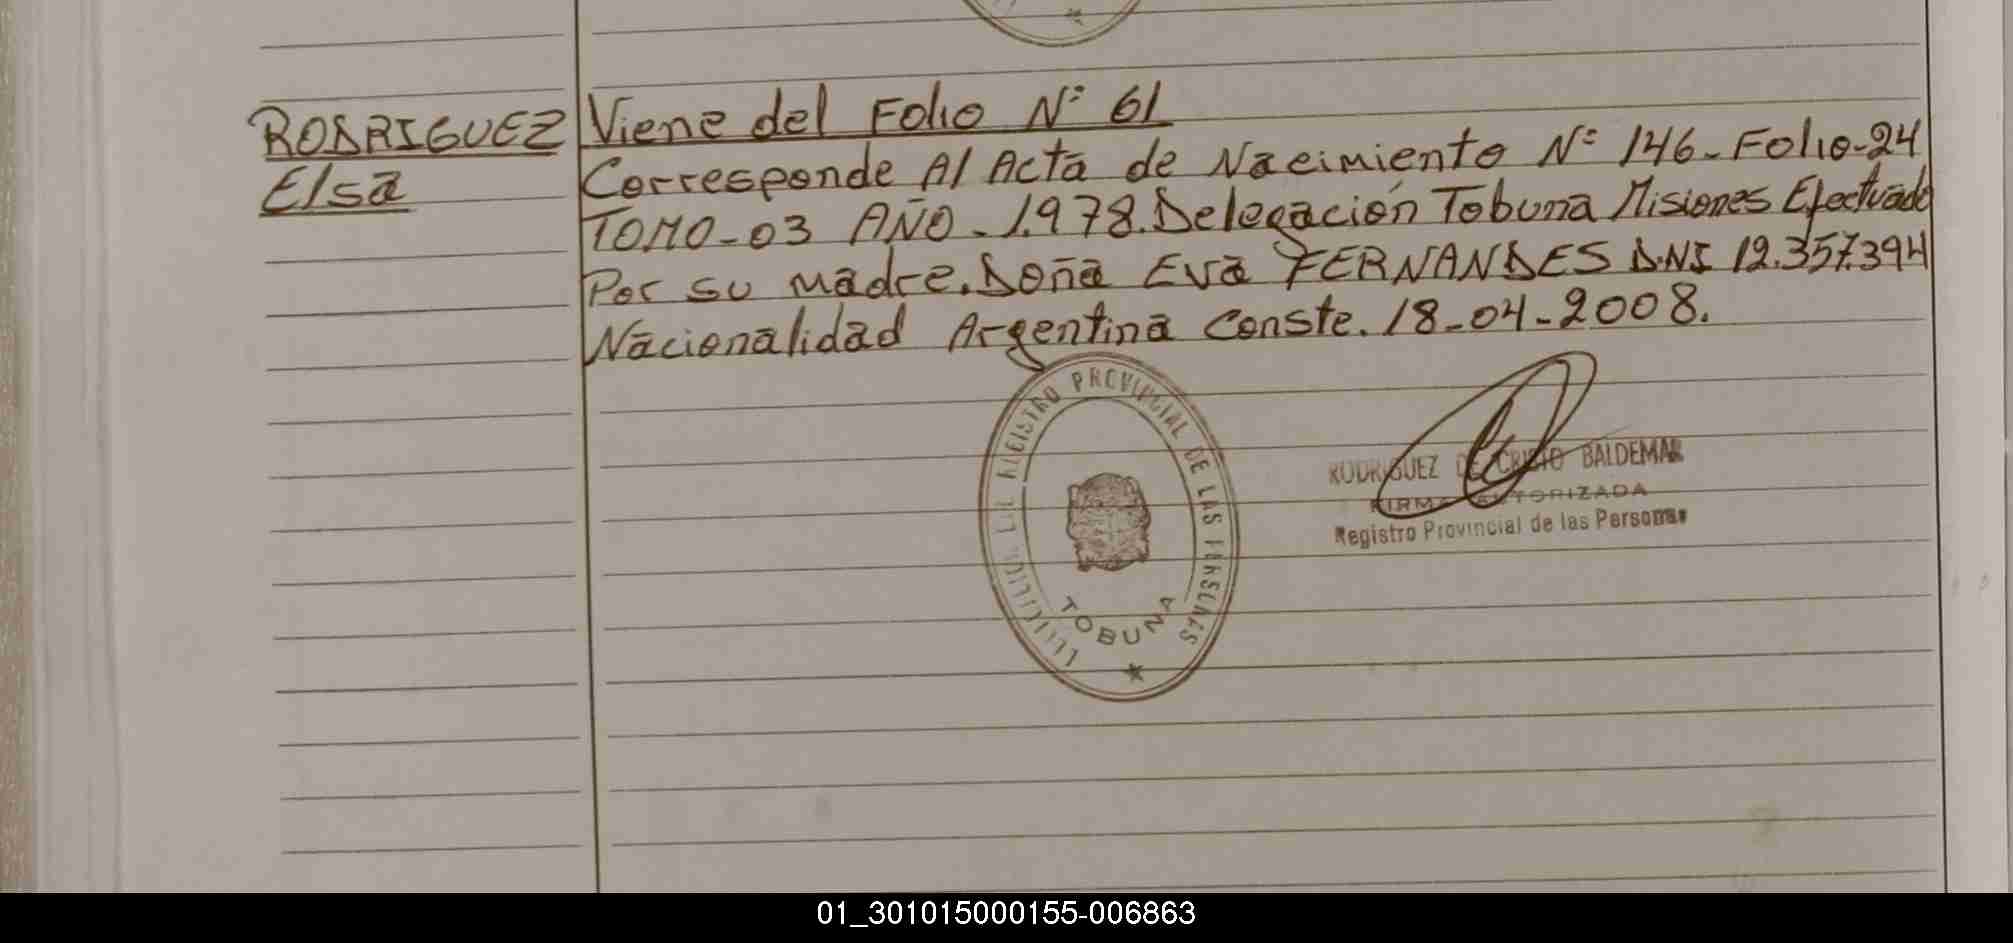 RODRIGUEZ Viene del Folio Nº 61
Elsa Corresponde Al Acta de Nacimiento Nº 146-Folio-24
TOMO-03 AÑO-1.978. Delegación Tobuna Misiones Efectuado
Por su madre. Doña Eva FERNANDES D.N.I 12.357.394
Nacionalidad Argentina Conste. 18-04-2008.
REGISTRO PROVINCIAL DE LAS PERSONAS
TOBUNA
RODRIGUEZ DE CRISTO BALDEMAR
FIRMA AUTORIZADA
Registro Provincial de las Personas
01_301015000155-006863